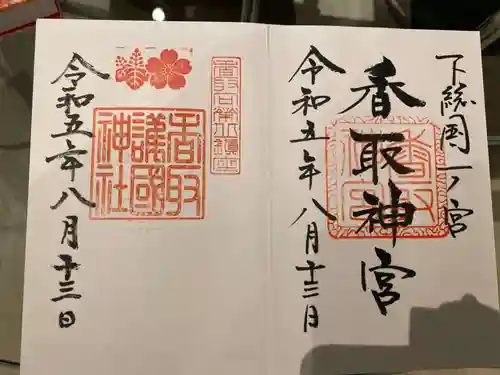 下総国一ノ宮
香取神宮
令和五年八月十三日
香取
護國
神社
令和五年八月十三日